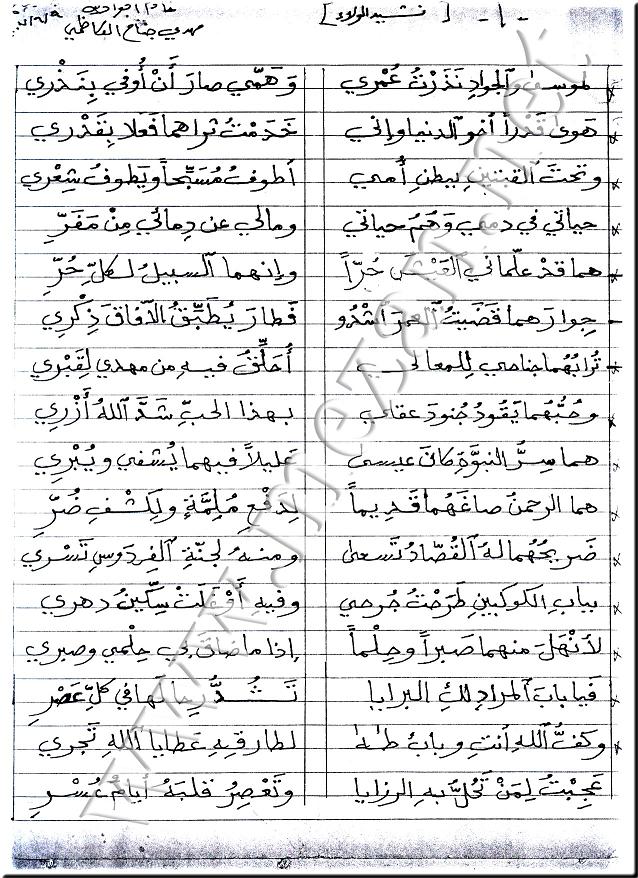 - ١ - [ نشيد الولاء ] خادم الجوادين
مهدي جناح الكاظمي
لموسى والجوادِ نَذَرْتُ عُمْري وَهَمّي صارَ أَنْ أُوفي بِنَذْري
هَوىً قَدْراً أخو الدنيا وإني خَدَمْتُ ثراهما فَعَلا بِقَدْري
وتحتَ القبتينِ بِبطنِ أُمي أطوفُ مُسَبِّحاً ويَطوفُ شِعْري
حياتي في دمي وَهُمُ حياتي ومالي عن دِمائي مِنْ مَفَرِّ
هما قدْ علّماني العَيْشَ حُرّاً وإنهما السبيلُ لكلِّ حُرِّ
جِوارَهما قَضَيتُ العمرَ أشْدُو فَطارَ يُطَبِّقُ الآفاقَ ذِكْري
تُرابُهُما جناحي لِلمعالي أُحَلِّقُ فيهِ من مهدي لِقَبْري
وحُبُّهُما يَقُودُ جُنودَ عقلي بهذا الحبِّ شَدَّ اللهُ أَزْري
هما سِرُّ النبوَّةِ كانَ عيسى عَليلاً فيهما يُشفي ويُبْري
هما الرحمنُ صاغَهُما قَديماً لِدَفْعِ مُلِمَّةٍ ولِكَشْفِ ضُرِّ
ضَريحُهُما لهُ القُصّادُ تَسعى ومنهُ لجنّةِ الفِردوسِ تَسْري
ببابِ الكوكبينِ طَرَحْتُ جُرحي وفيهِ أَوْغَلَتْ سِكّينُ دهري
لأنْهَلَ منهما صَبراً وحِلْماً إذا ما ضاقَ بي حِلْمي وصبري
فيا بابَ المرادِ لكِ البرايا تَشُدُّ رِحالَها في كلِّ عَصْرِ
وكفُّ اللهِ أنتِ وبابُ طه لطارقِهِ عَطايا اللهِ تَجري
عَجِبْتُ لِمَنْ تَحُلُّ بهِ الرزايا وتَعْصِرُ قلبَهُ أيامُ عُسْرِ
www.mezan.net